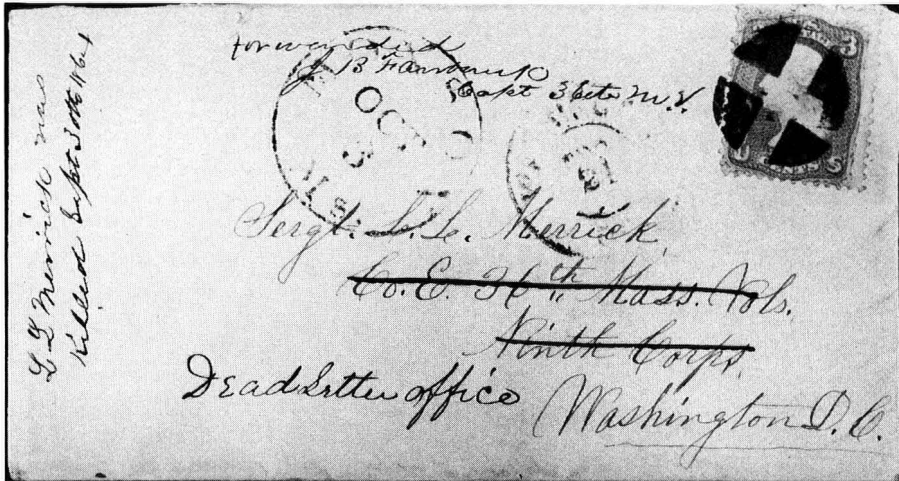 L L Merrick was
Killed Sept 30th 1864
Forwarded
J B
Capt 36th M.V.
OCT
3
Sergt. L. L. Merrick,
Co. E. 36th Mass. Vols.
Ninth Corps,
Dead Letter office
Washington D. C.